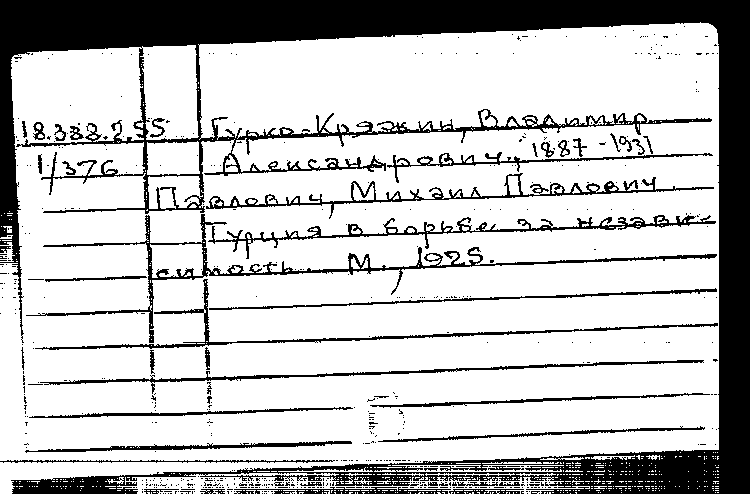 18.388.2.55 Гурко-Кряжин, Владимир
1/376 Александрович, 1887 - 1931
Павлович, Михаил Павлович
Турция в борьбе за незави-
симость. М., 1925.